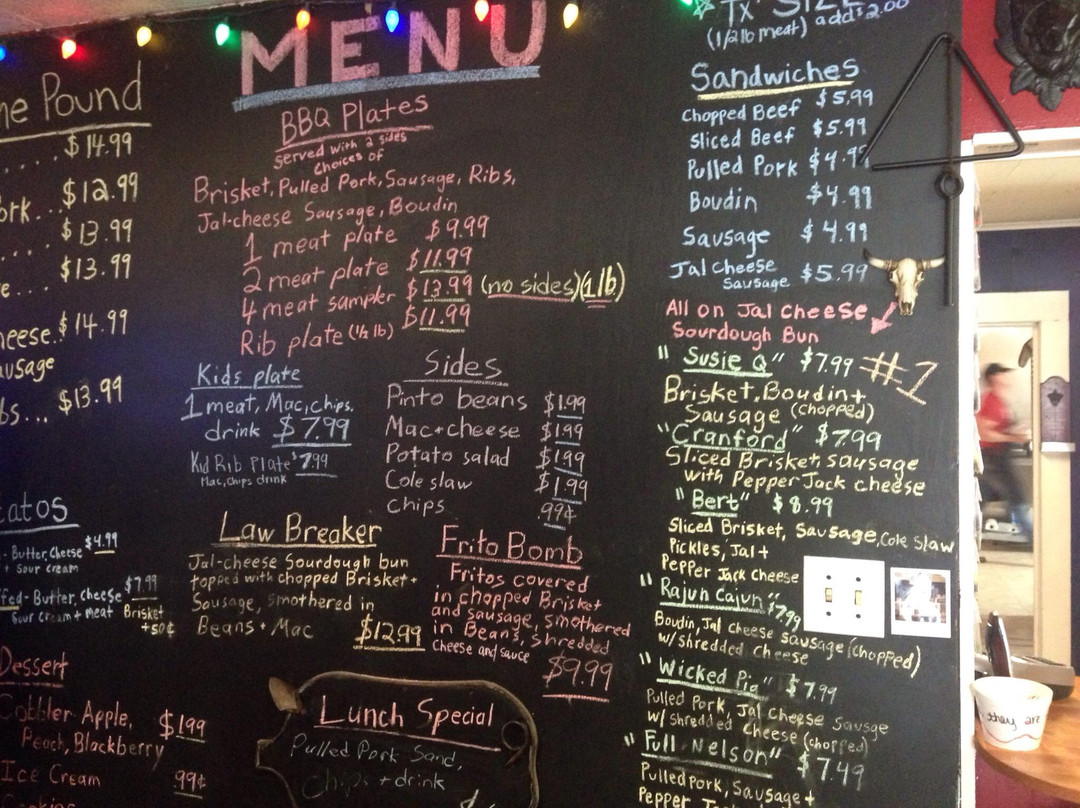 MENU
he Pound
.... $14.99
ork... $12.99
.... $13.99
e... $13.99
heese. $14.99
ausage
bs... $13.99
atos
- Butter, Cheese $4.99
+ Sour cream
fed- Butter, cheese $7.99
Sour cream + meat Brisket
+50¢
Dessert
Cobbler- Apple, $1.99
Peach, Blackberry
Ice Cream 99¢
BBQ Plates
Served with 2 sides
Choices of
Brisket, Pulled Pork, Sausage, Ribs,
Jal-cheese Sausage, Boudin
1 meat plate $9.99
2 meat plate $11.99
4 meat sampler $13.99 (no sides)(1lb)
Rib plate (½ lb) $11.99
Kids plate
1 meat, Mac, chips,
drink $7.99
Kid Rib Plate $7.99
Mac, Chips drink
Sides
Pinto beans $1.99
Mac+cheese $1.99
Potato salad $1.99
Cole slaw $1.99
Chips 99¢
Law Breaker
Jal-cheese Sourdough bun
topped with chopped Brisket +
Sausage, smothered in
Beans + Mac $12.99
Frito Bomb
Fritos covered
in chopped Brisket
and sausage, smothered
in Beans, shredded
Cheese and sauce
$9.99
Lunch Special
Pulled Pork Sand,
Chips + drink
TX SIZE
(1/2 lb meat) add $2.00
Sandwiches
Chopped Beef $5.99
Sliced Beef $5.99
Pulled Pork $4.99
Boudin $4.99
Sausage $4.99
Jal Cheese $5.99
Sausage
All on Jal Cheese
Sourdough Bun
"Susie Q" $7.99 #1
Brisket, Boudin +
Sausage (chopped)
"Cranford" $7.99
Sliced Brisket, sausage
with Pepper Jack cheese
"Bert" $8.99
Sliced Brisket, Sausage, Cole slaw
Pickles, Jal +
Pepper Jack Cheese
"Rajun Cajun" $7.99
Boudin, Jal cheese sausage (chopped)
w/ shredded cheese
"Wicked Pig" $7.99
Pulled Pork, Jal Cheese Sausge
w/ shredded cheese (chopped)
"Full Nelson" $7.49
Pulled Pork, Sausage +
Pepper
they are